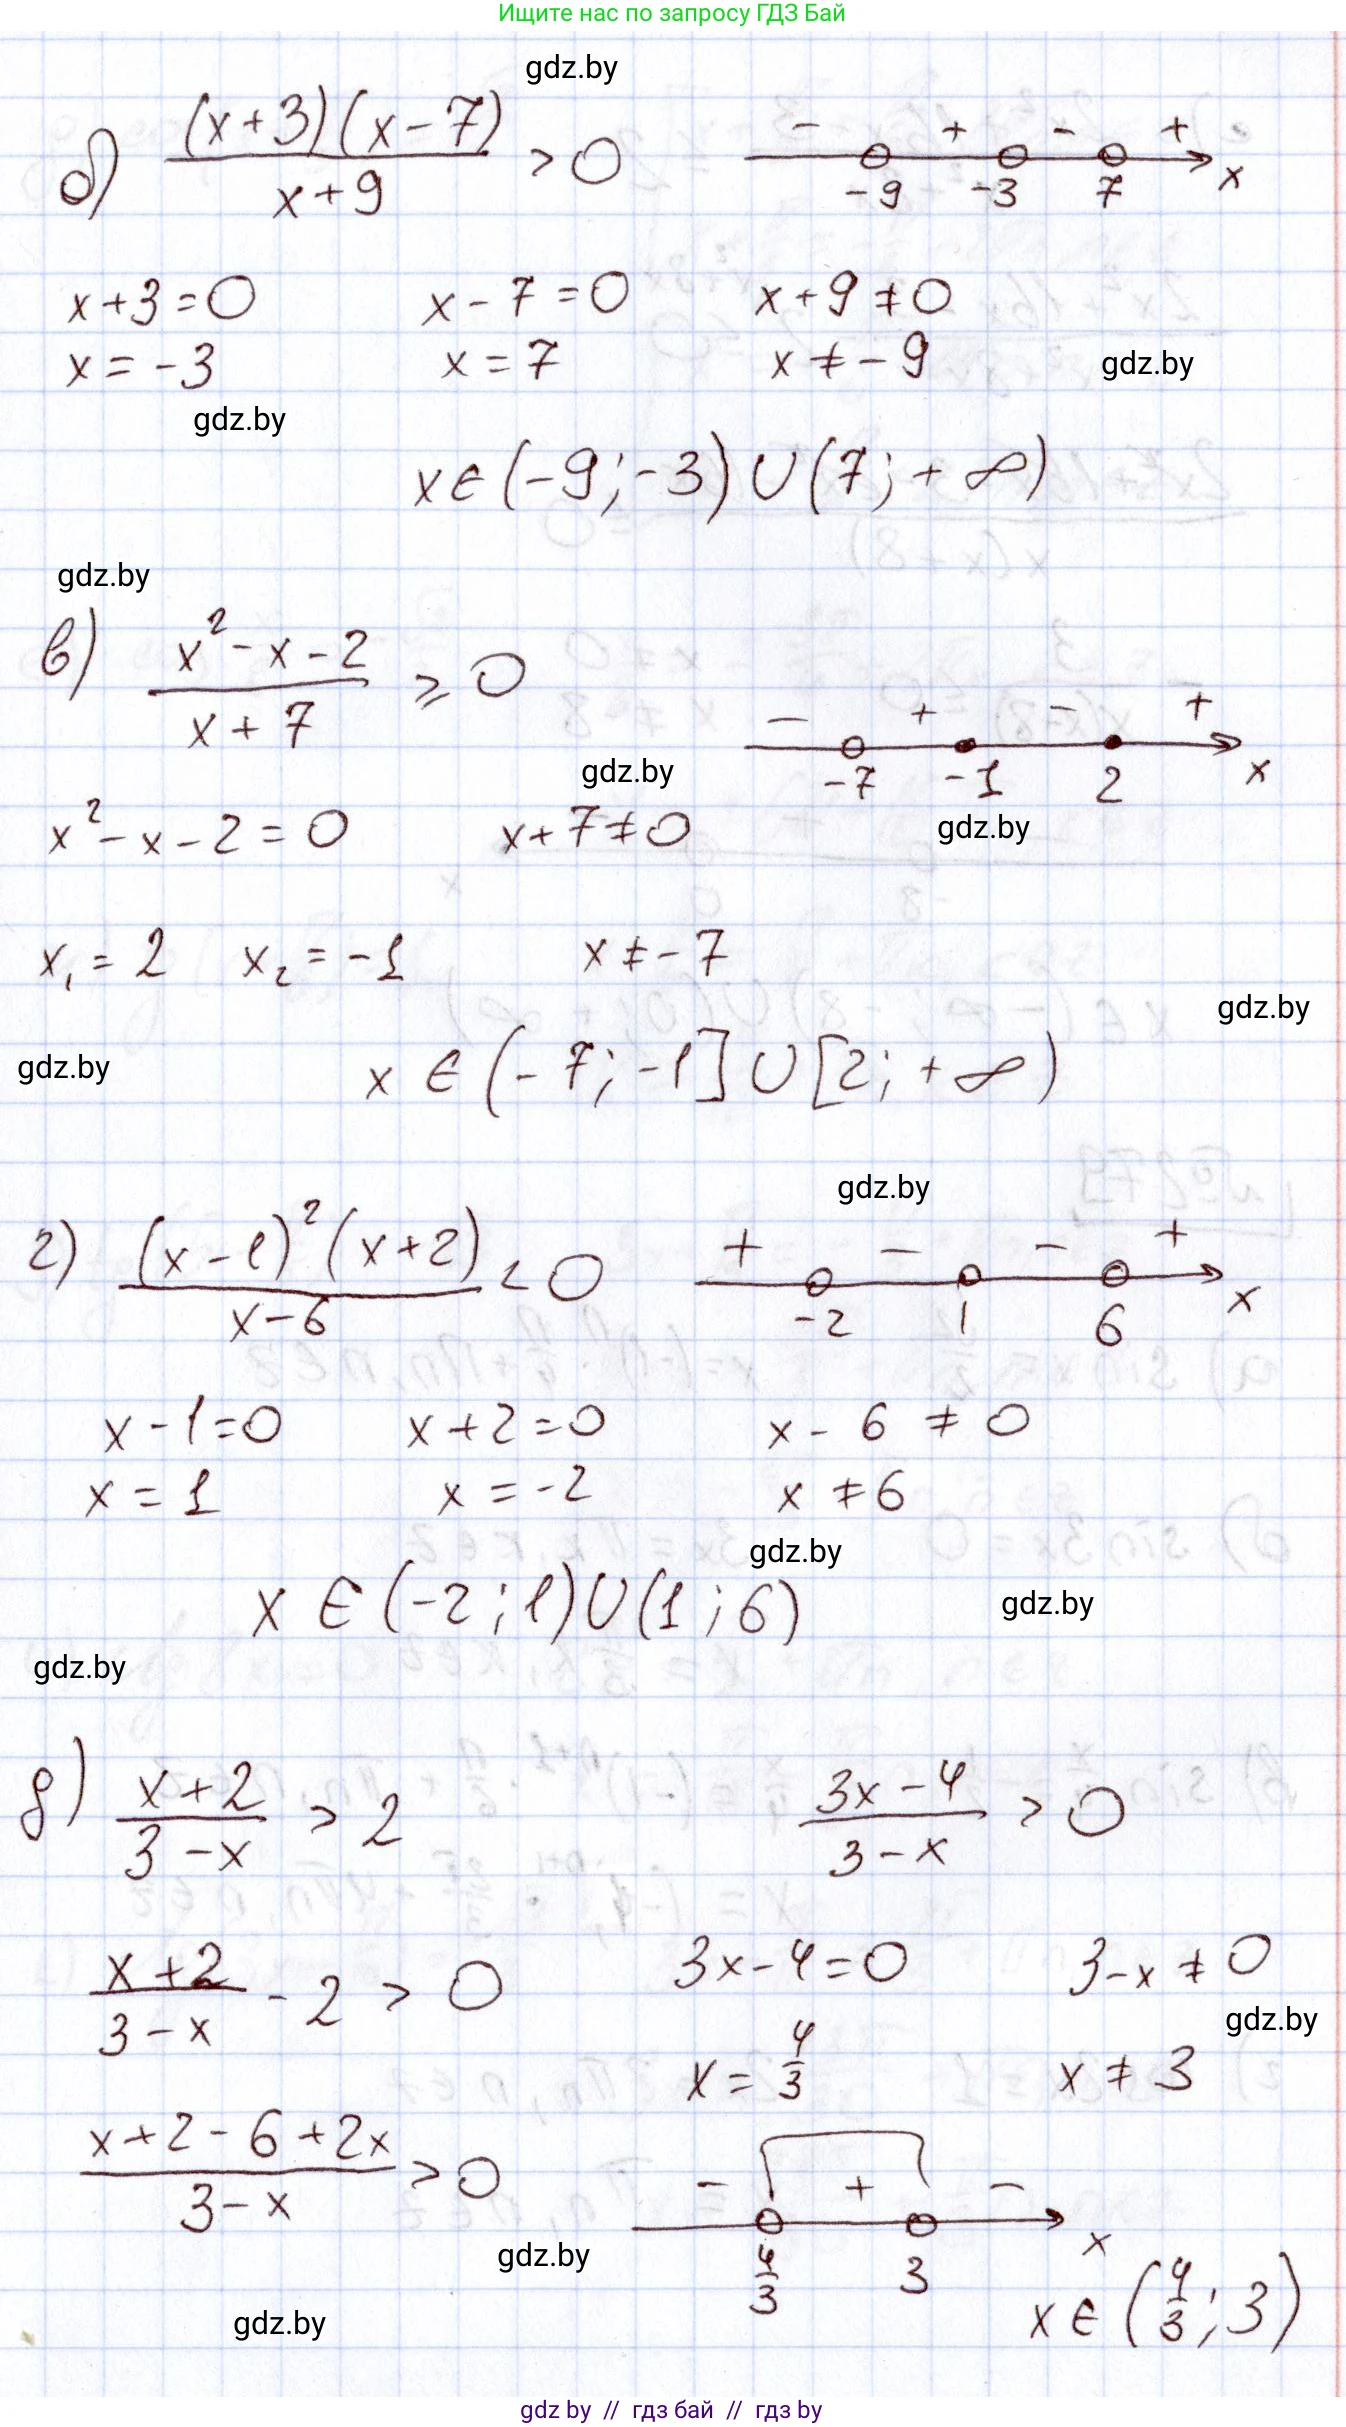 Ищите нас по запросу ГДЗ Бай
gdz.by
б) (x+3)(x-7) / x+9 > 0
- + - +
-9 -3 7 x
x+3=0 x-7=0 x+9≠0
x=-3 x=7 x≠-9
gdz.by
gdz.by
x∈(-9;-3)∪(7;+∞)
gdz.by
в) x²-x-2 / x+7 ⩾ 0
- + - +
-7 -1 2 x
gdz.by
gdz.by
x²-x-2=0 x+7≠0
x₁=2 x₂=-1 x≠-7
gdz.by
gdz.by
x∈(-7;-1]∪[2;+∞)
gdz.by
г) (x-1)²(x+2) / x-6 < 0
+ - - +
-2 1 6 x
x-1=0 x+2=0 x-6≠0
x=1 x=-2 x≠6
gdz.by
x∈(-2;1)∪(1;6)
gdz.by
gdz.by
д) x+2 / 3-x > 2
3x-4 / 3-x > 0
x+2 / 3-x - 2 > 0
3x-4=0 3-x≠0
gdz.by
x=4/3 x≠3
x+2-6+2x / 3-x > 0
- + -
4/3 3 x
gdz.by
x∈(4/3;3)
gdz.by
gdz by // гдз бай // гдз by